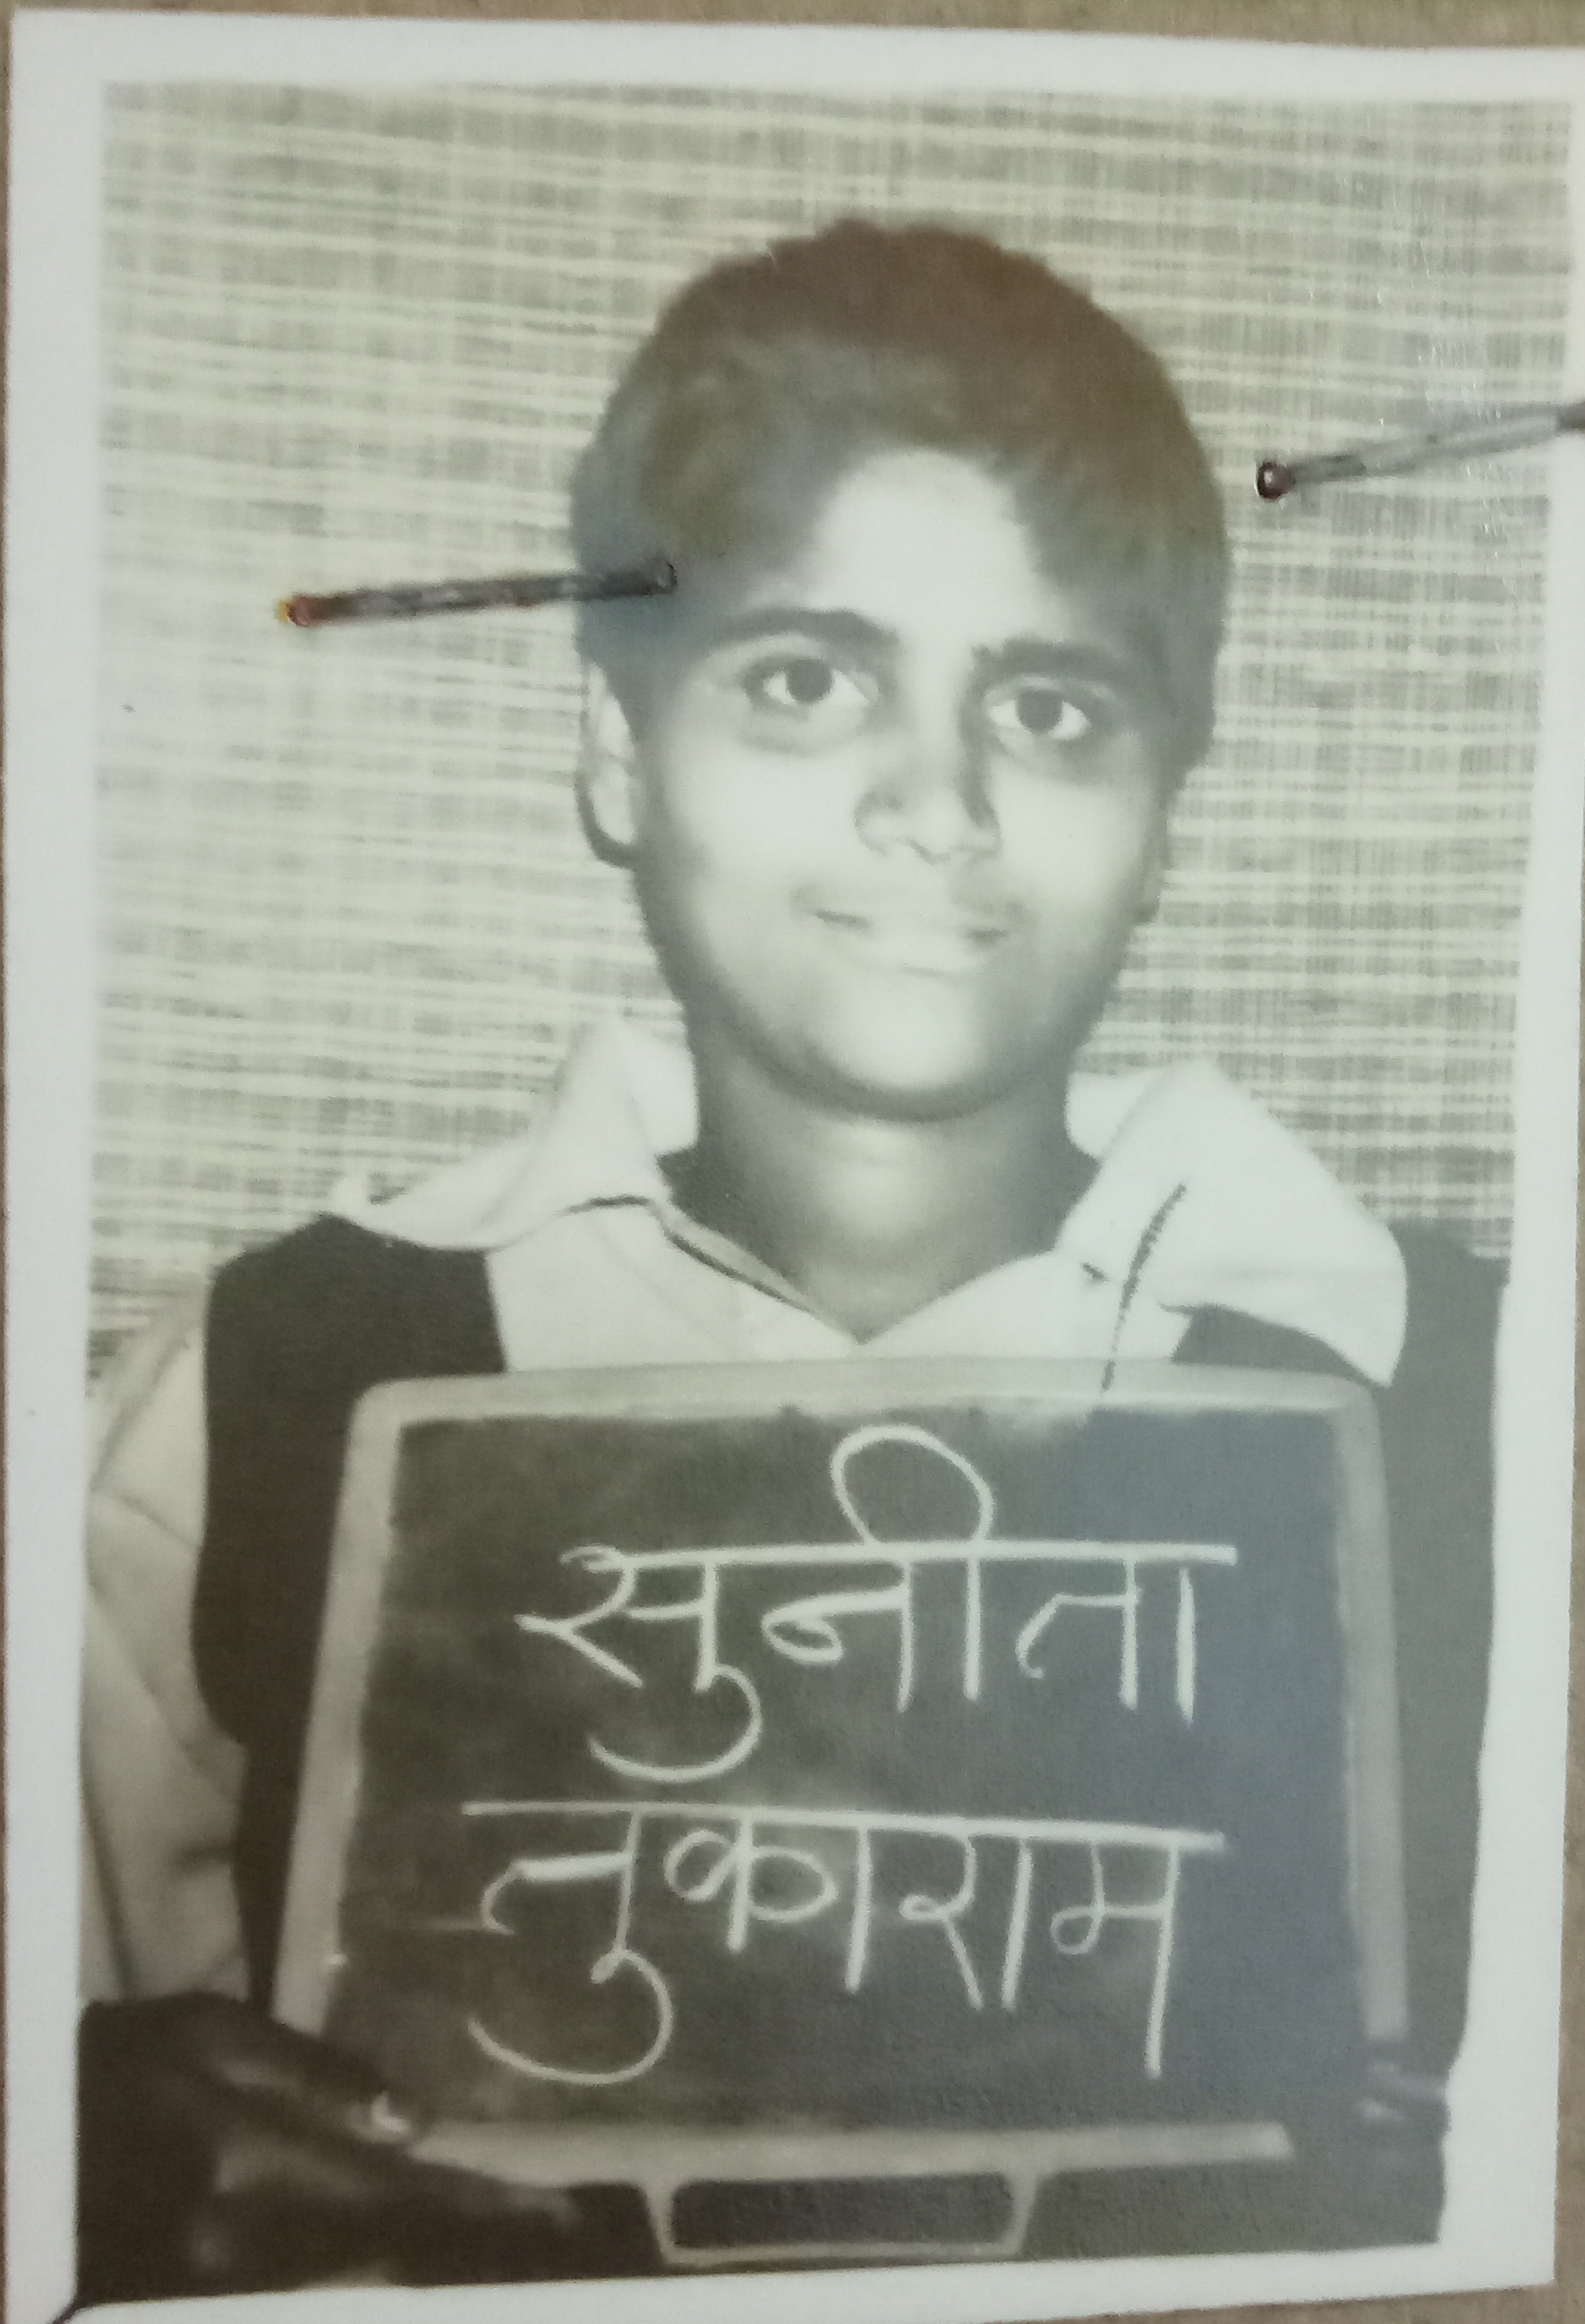 सुनीता
तुकाराम